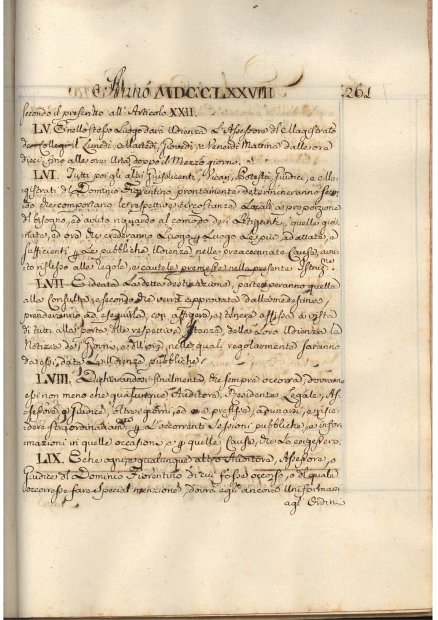 Anno MDCCLXXVIII 261
secondo il prescritto all'Articolo XXII.
LV. Nello stesso Luogo darà Udienza l'Assessore del Magistrato
Lunedì, Martedì, Giovedì, e Venerdì Mattina dalle ore
dieci fino alle ore Una doppo il Mezzo giorno.
LVI. Tutti poi gli altri Vicarj, Potestà, Giudici, e Ma-
gistrati del Dominio Fiorentino prontamente determineranno secon-
do che comportano le respettive circostanze Locali a proporzione
del bisogno, ed avuto riguardo al comodo dei Litiganti, quelle gior-
nate, ed ore che crederanno Luogo per Luogo Le più adattate, e
sufficienti per Le pubbliche Udienze nelle preaccennate Cause, avu-
to riflesso alle regole, e cautele premesse nella presente Istruz.e
LVII. E datà La detta destinazione, parteciperanno quella
alla Consulta, e secondo che verrà approvata dalla medesima
prenderanno ad eseguirla, con affiggere, e tenere affissa a vista
di tutti alla porta della respettiva Stanza della Loro Udienza la
Notizia de' Giorni, e dell'ore, nelle quali regolarmente saranno
da essi date Le Udienze pubbliche.
LVIII. Dichiarandosi finalmente, che sempre occorra, dovranno
essi non meno che qualunque Auditore, Presidente Legale, As-
sessore, e Giudice, oltre i giorni, ed ore prefisse, adunarsi, e risie-
dere straordinariam.e per l'occorrenti Sessioni pubbliche, e infor-
mazioni in quelle occasioni, e per quelle Cause, che Lo esigessero.
LIX. E che ogni, e qualunque altro Auditore, Assessore, o
Giudice del Dominio Fiorentino di cui fosse occorso, o del quale
occorresse fare special menzione, dovrà egli ancora Uniformarsi
agl'Ordini